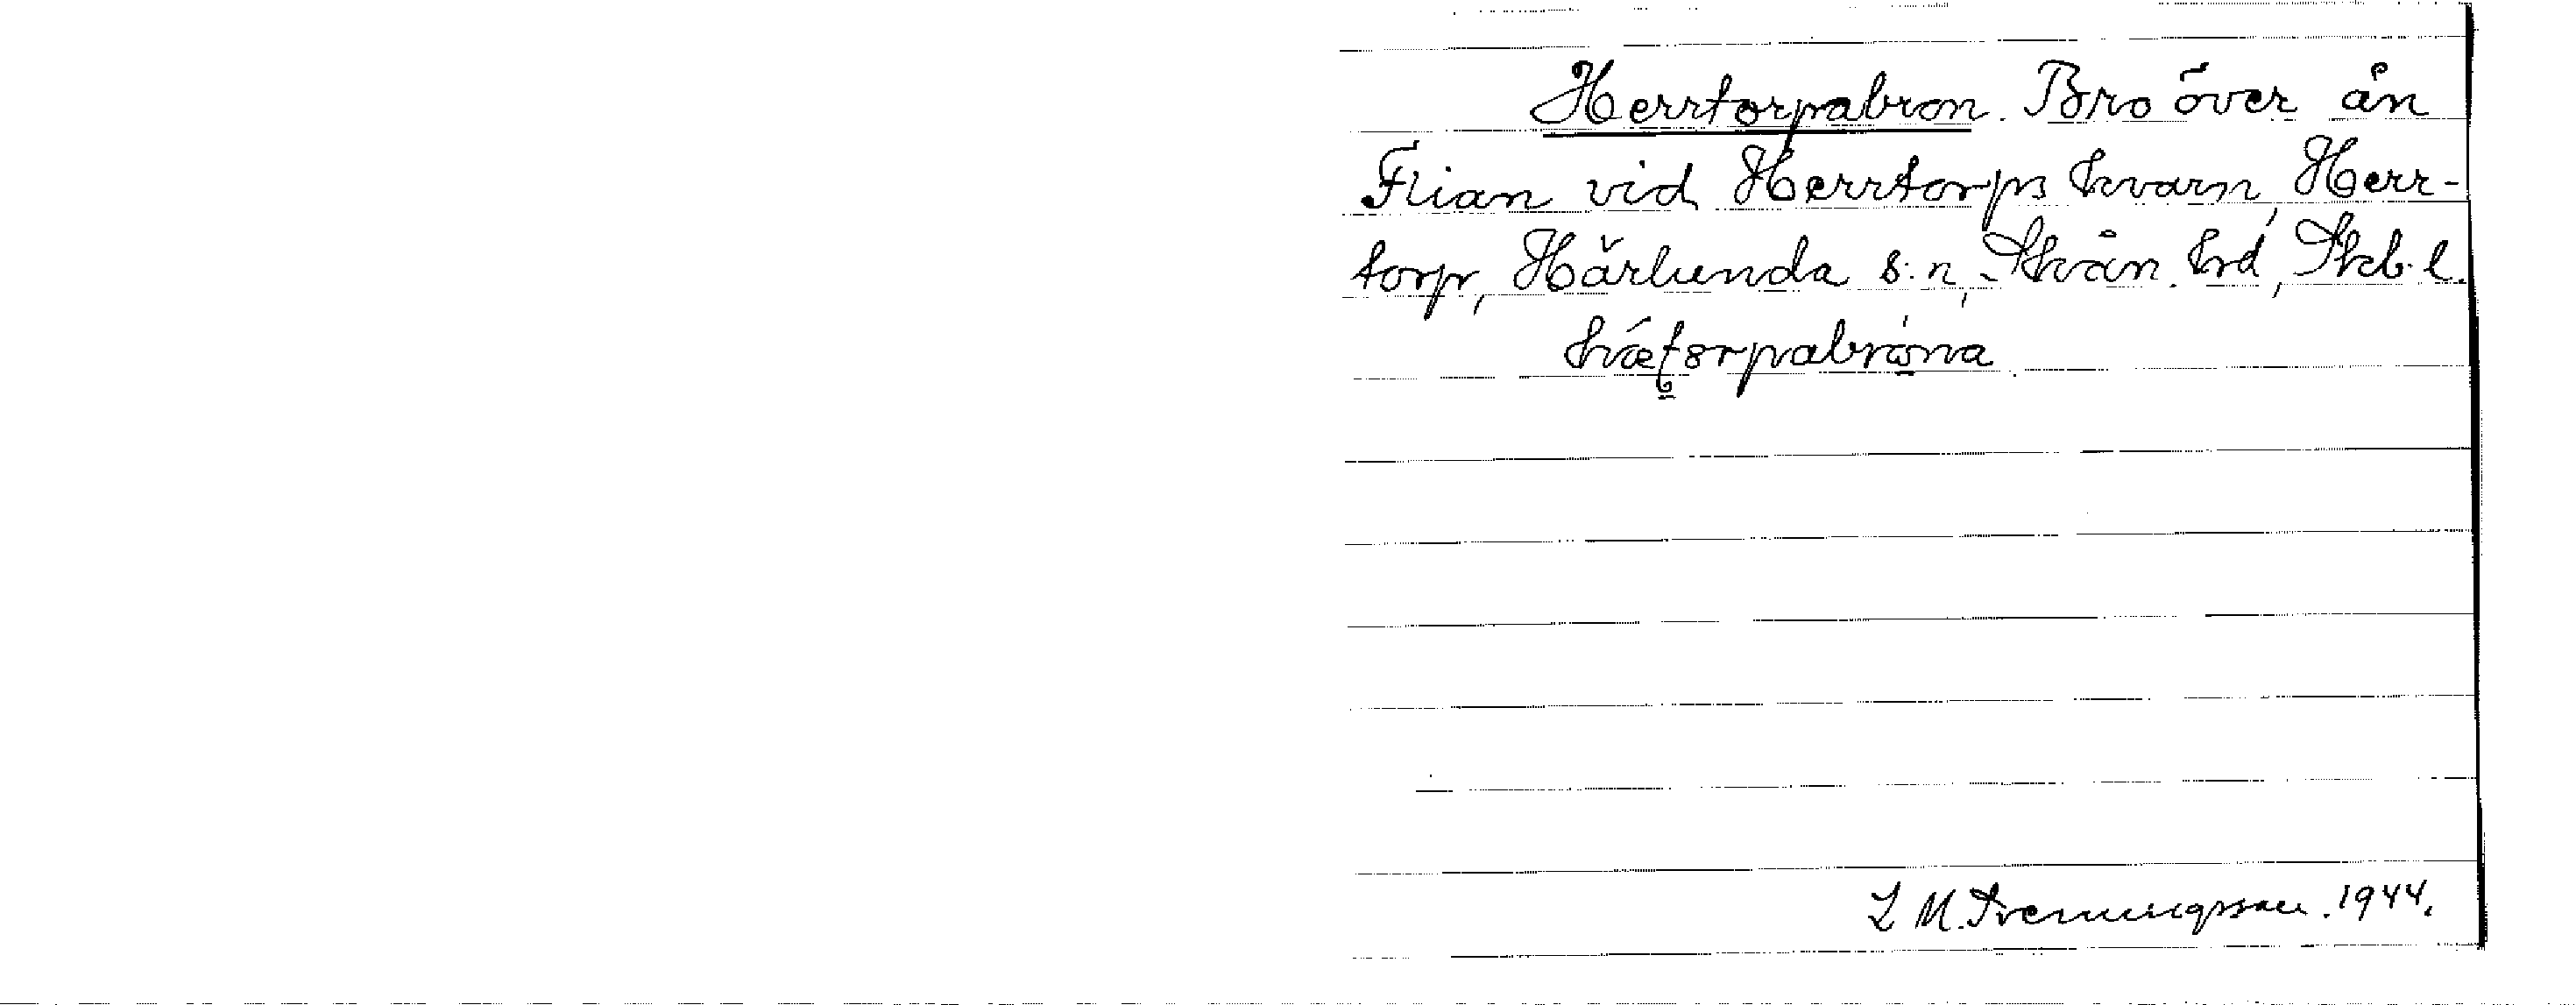 Herrtorpabron. Bro över ån
Flian vid Herrtorps kvarn, Herr-
torp, Härlunda s:n, Skån. hd, Skb. l.
L M. Svenungsson. 1944.